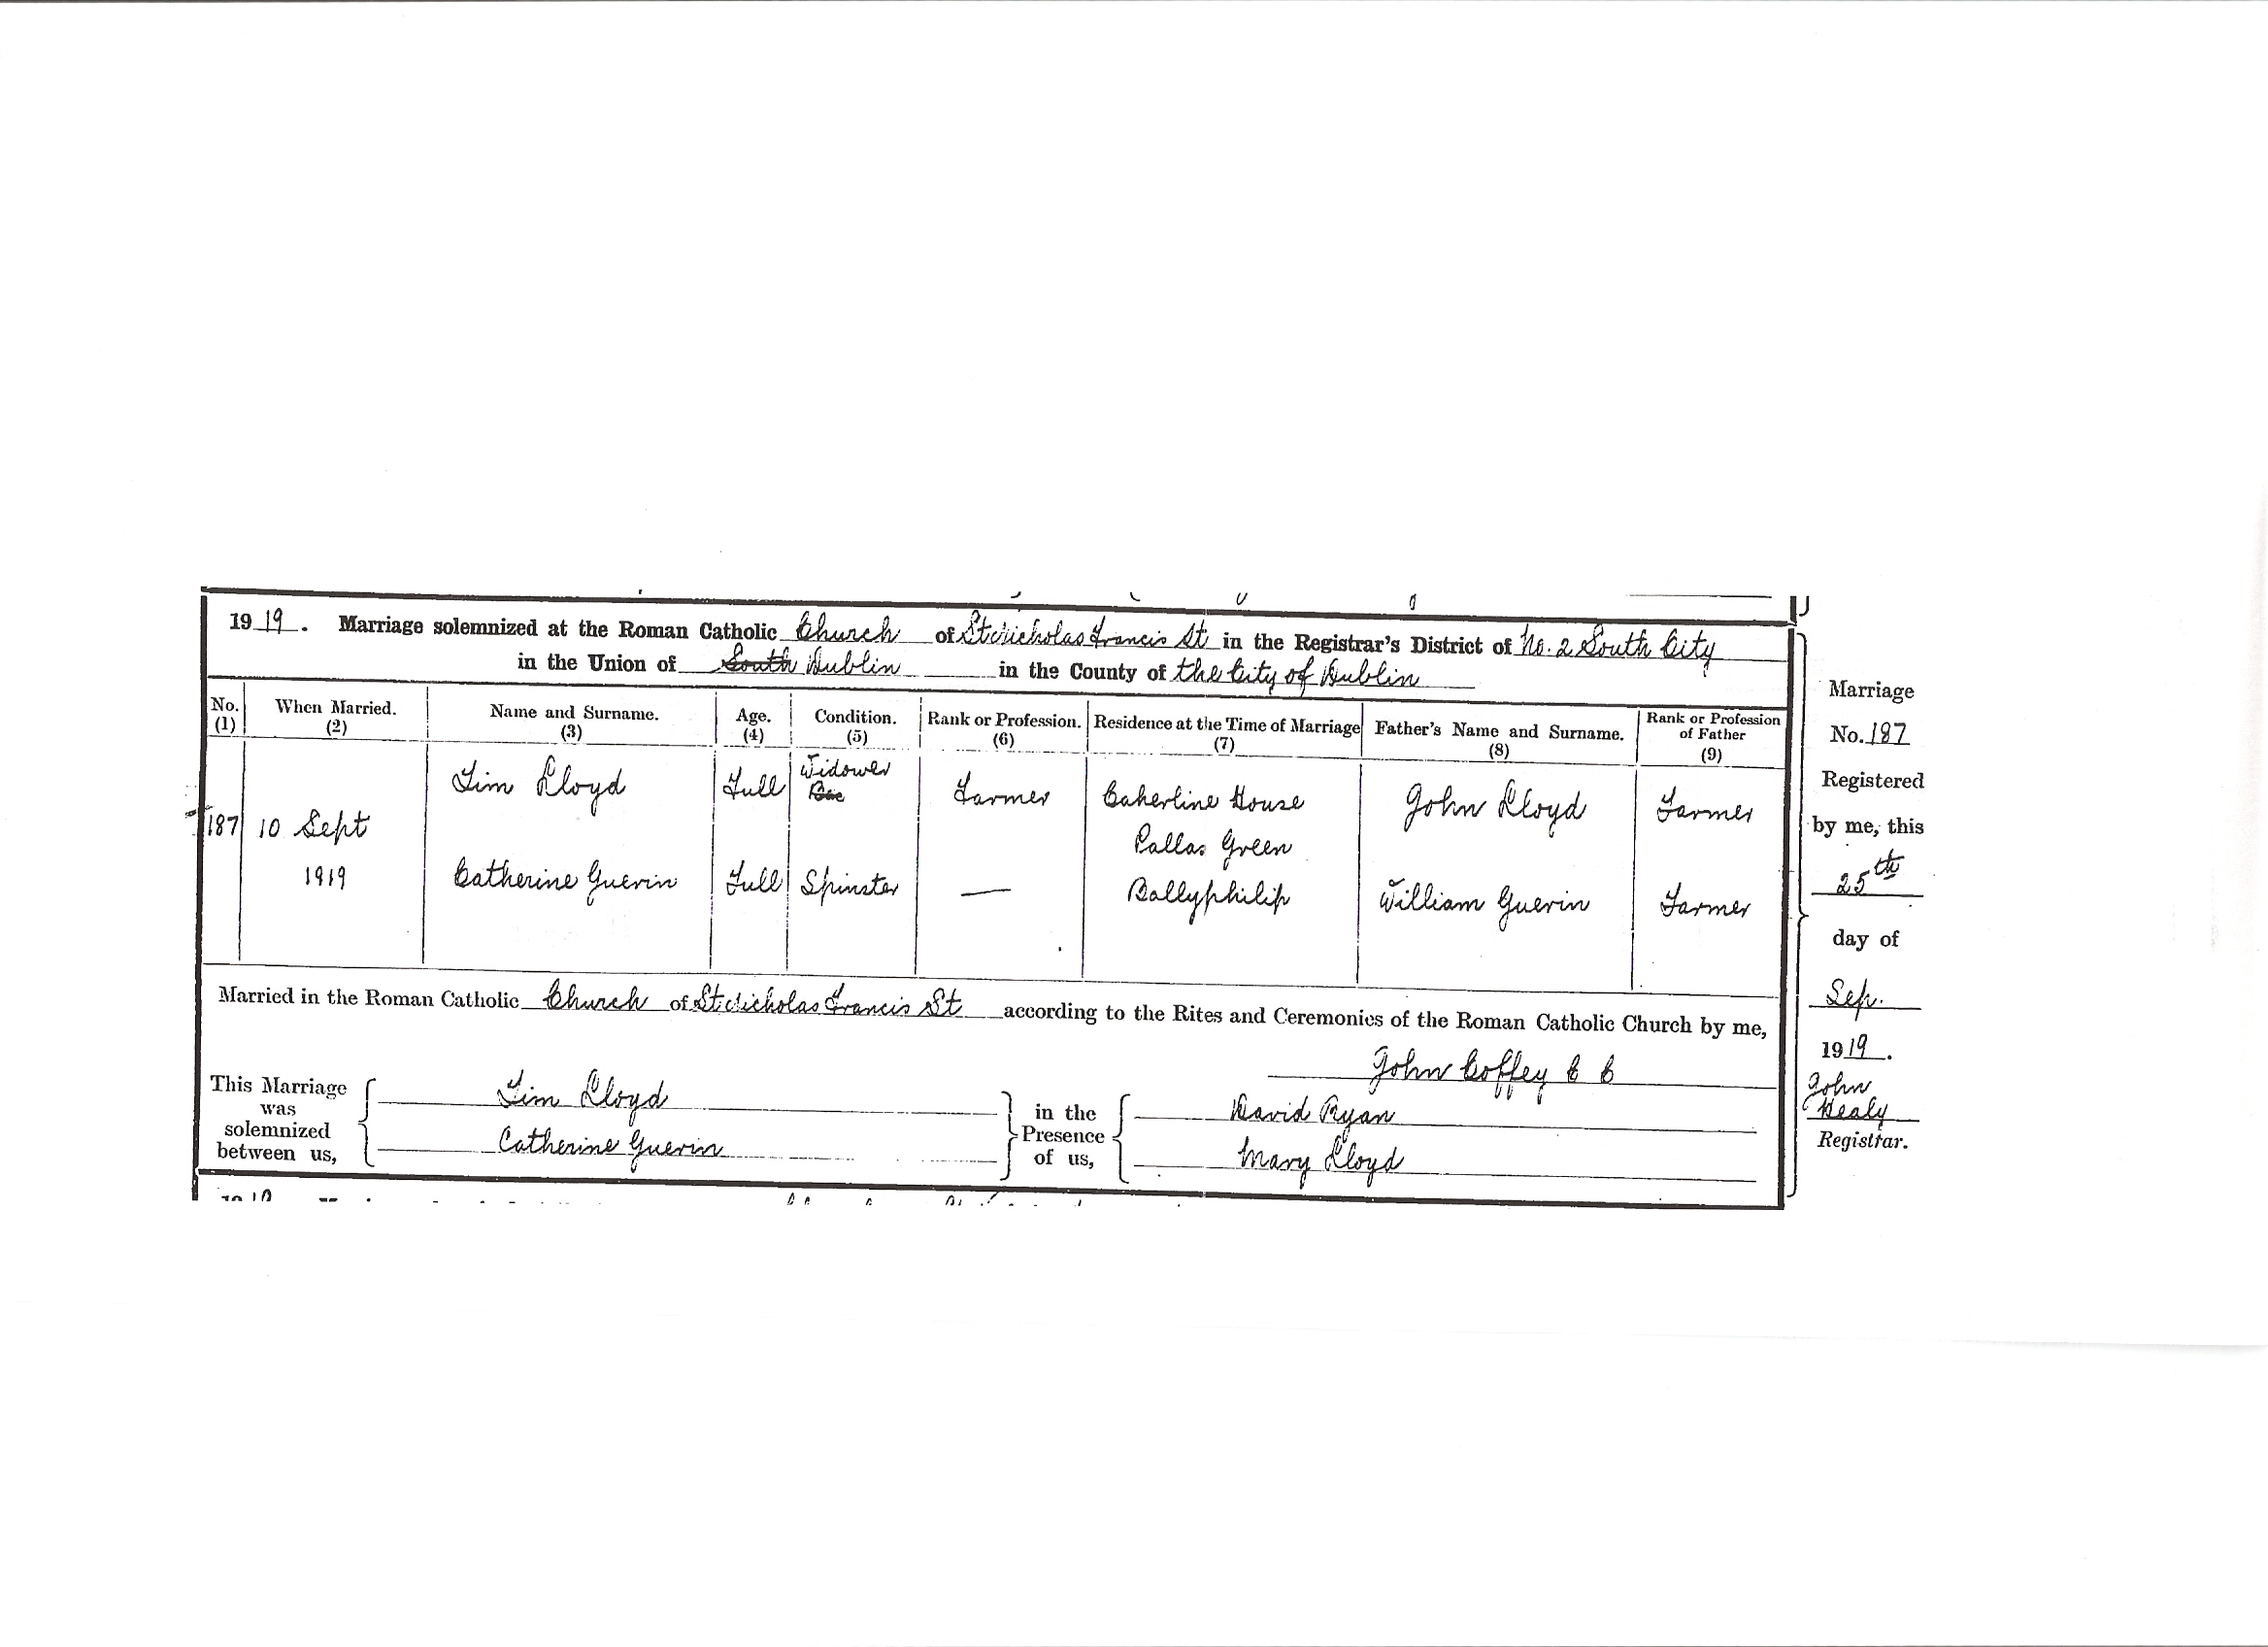 1919. Marriage solemnized at the Roman Catholic Church of St Nicholas Francis St in the Registrar's District of No. 2 South City
in the Union of South Dublin in the County of the City of Dublin
No. (1) When Married. (2) Name and Surname. (3) Age. (4) Condition. (5) Rank or Profession. (6) Residence at the Time of Marriage (7) Father's Name and Surname. (8) Rank or Profession of Father (9)
Tim Lloyd Full Widower Bac Farmer Caherline House John Lloyd Farmer
187 10 Sept Pallas Green
1919 Catherine Guerin Full Spinster — Ballyphilip William Guerin Farmer
Married in the Roman Catholic Church of St Nicholas Francis St according to the Rites and Ceremonies of the Roman Catholic Church by me,
John Coffey C C
This Marriage was solemnized between us,
Tim Lloyd
Catherine Guerin
in the Presence of us,
David Ryan
Mary Lloyd
Marriage
No. 187
Registered
by me, this
25th
day of
Sep.
1919.
John
Healy
Registrar.